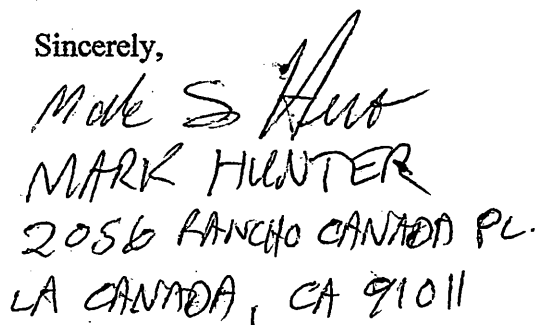 Sincerely,
Mark S Hunter
MARK HUNTER
2056 RANCHO CANADA PL.
LA CANADA, CA 91011